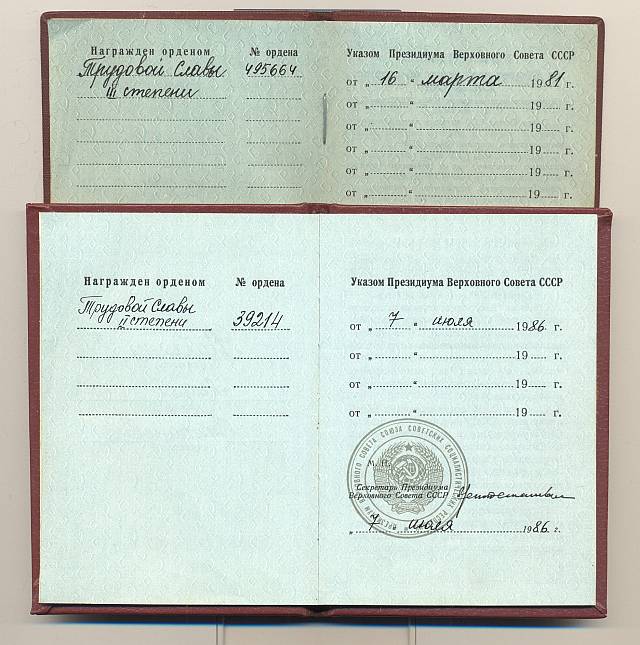 Награжден орденом № ордена Указом Президиума Верховного Совета СССР
Трудовой Славы 495664 от „ 16 “ марта 1981 г.
III степени от „ “ 19 г.
от „ “ 19 г.
от „ “ 19 г.
от „ “ 19 г.
от „ “ 19 г.
Награжден орденом № ордена Указом Президиума Верховного Совета СССР
Трудовой Славы
II степени 39214 от „ 7 “ июля 1986 г.
от „ “ 19 г.
от „ “ 19 г.
от „ “ 19 г.
ПРЕЗИДИУМ ВЕРХОВНОГО СОВЕТА СОЮЗА СОВЕТСКИХ СОЦИАЛИСТИЧЕСКИХ
М. П.
Секретарь Президиума
Верховного Совета СССР
„ 7 “ июля 1986 г.